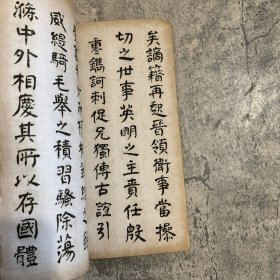 矣謫籍再起晉領衛事當操
切之世事英明之主責任殷
重鐫訶刺促兄獨傳古誼引
威緩騎毛舉之積習騷除蕩
滌中外相慶其所以存國體